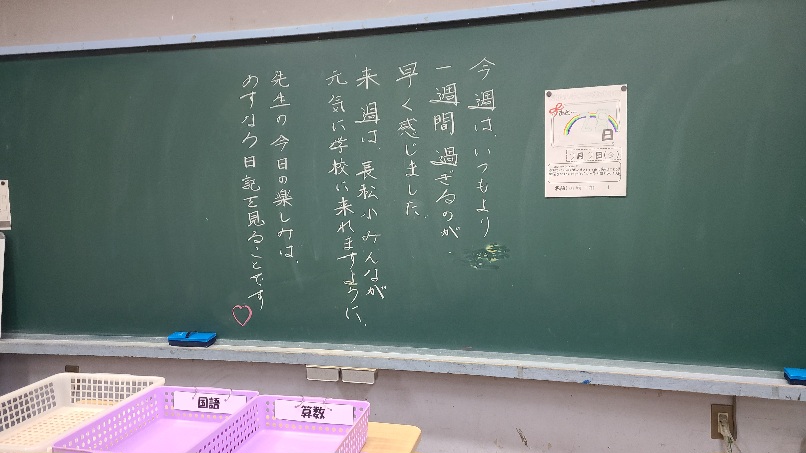 今週は、いつもより
一週間過ぎるのが、
早く感じました。
来週は、長松小みんなが
元気に学校に来れますように、
先生の今日の楽しみは、
あすなろ日記を見ることです♡
あと
日
月 日
国語
算数